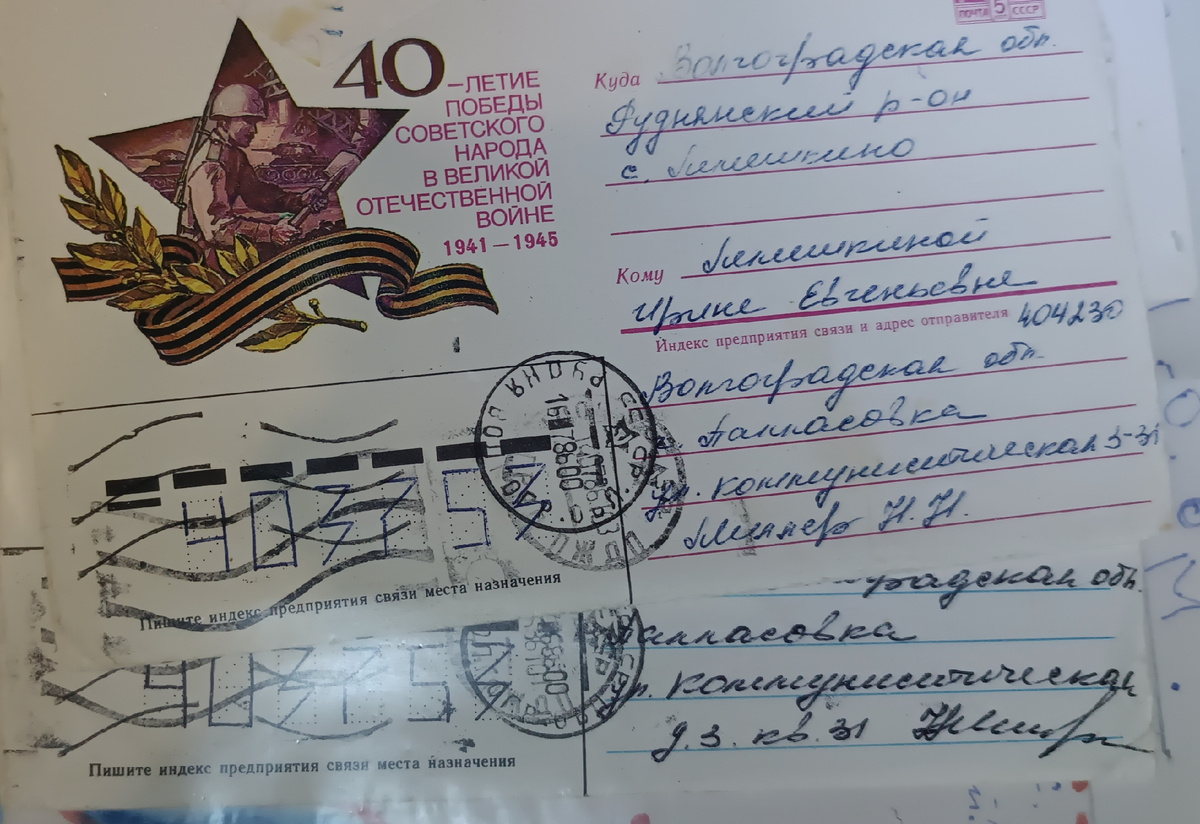 40
-ЛЕТИЕ
ПОБЕДЫ
СОВЕТСКОГО
НАРОДА
В ВЕЛИКОЙ
ОТЕЧЕСТВЕННОЙ
ВОЙНЕ
1941 — 1945
ПОЧТА 5 СССР
Куда Волгоградская обл.
Руднянский р-он
с. Лемешкино
Кому Лемешкиной
Ирине Евгеньевне
Индекс предприятия связи и адрес отправителя 404230
Волгоградская обл.
Палласовка
ул. Коммунистическая 3-31
Миллер Н.Н.
РУДНЯ
Пишите индекс предприятия связи места назначения
градская обл.
Палласовка
ул. Коммунистическая
д. 3. кв. 31
Пишите индекс предприятия связи места назначения